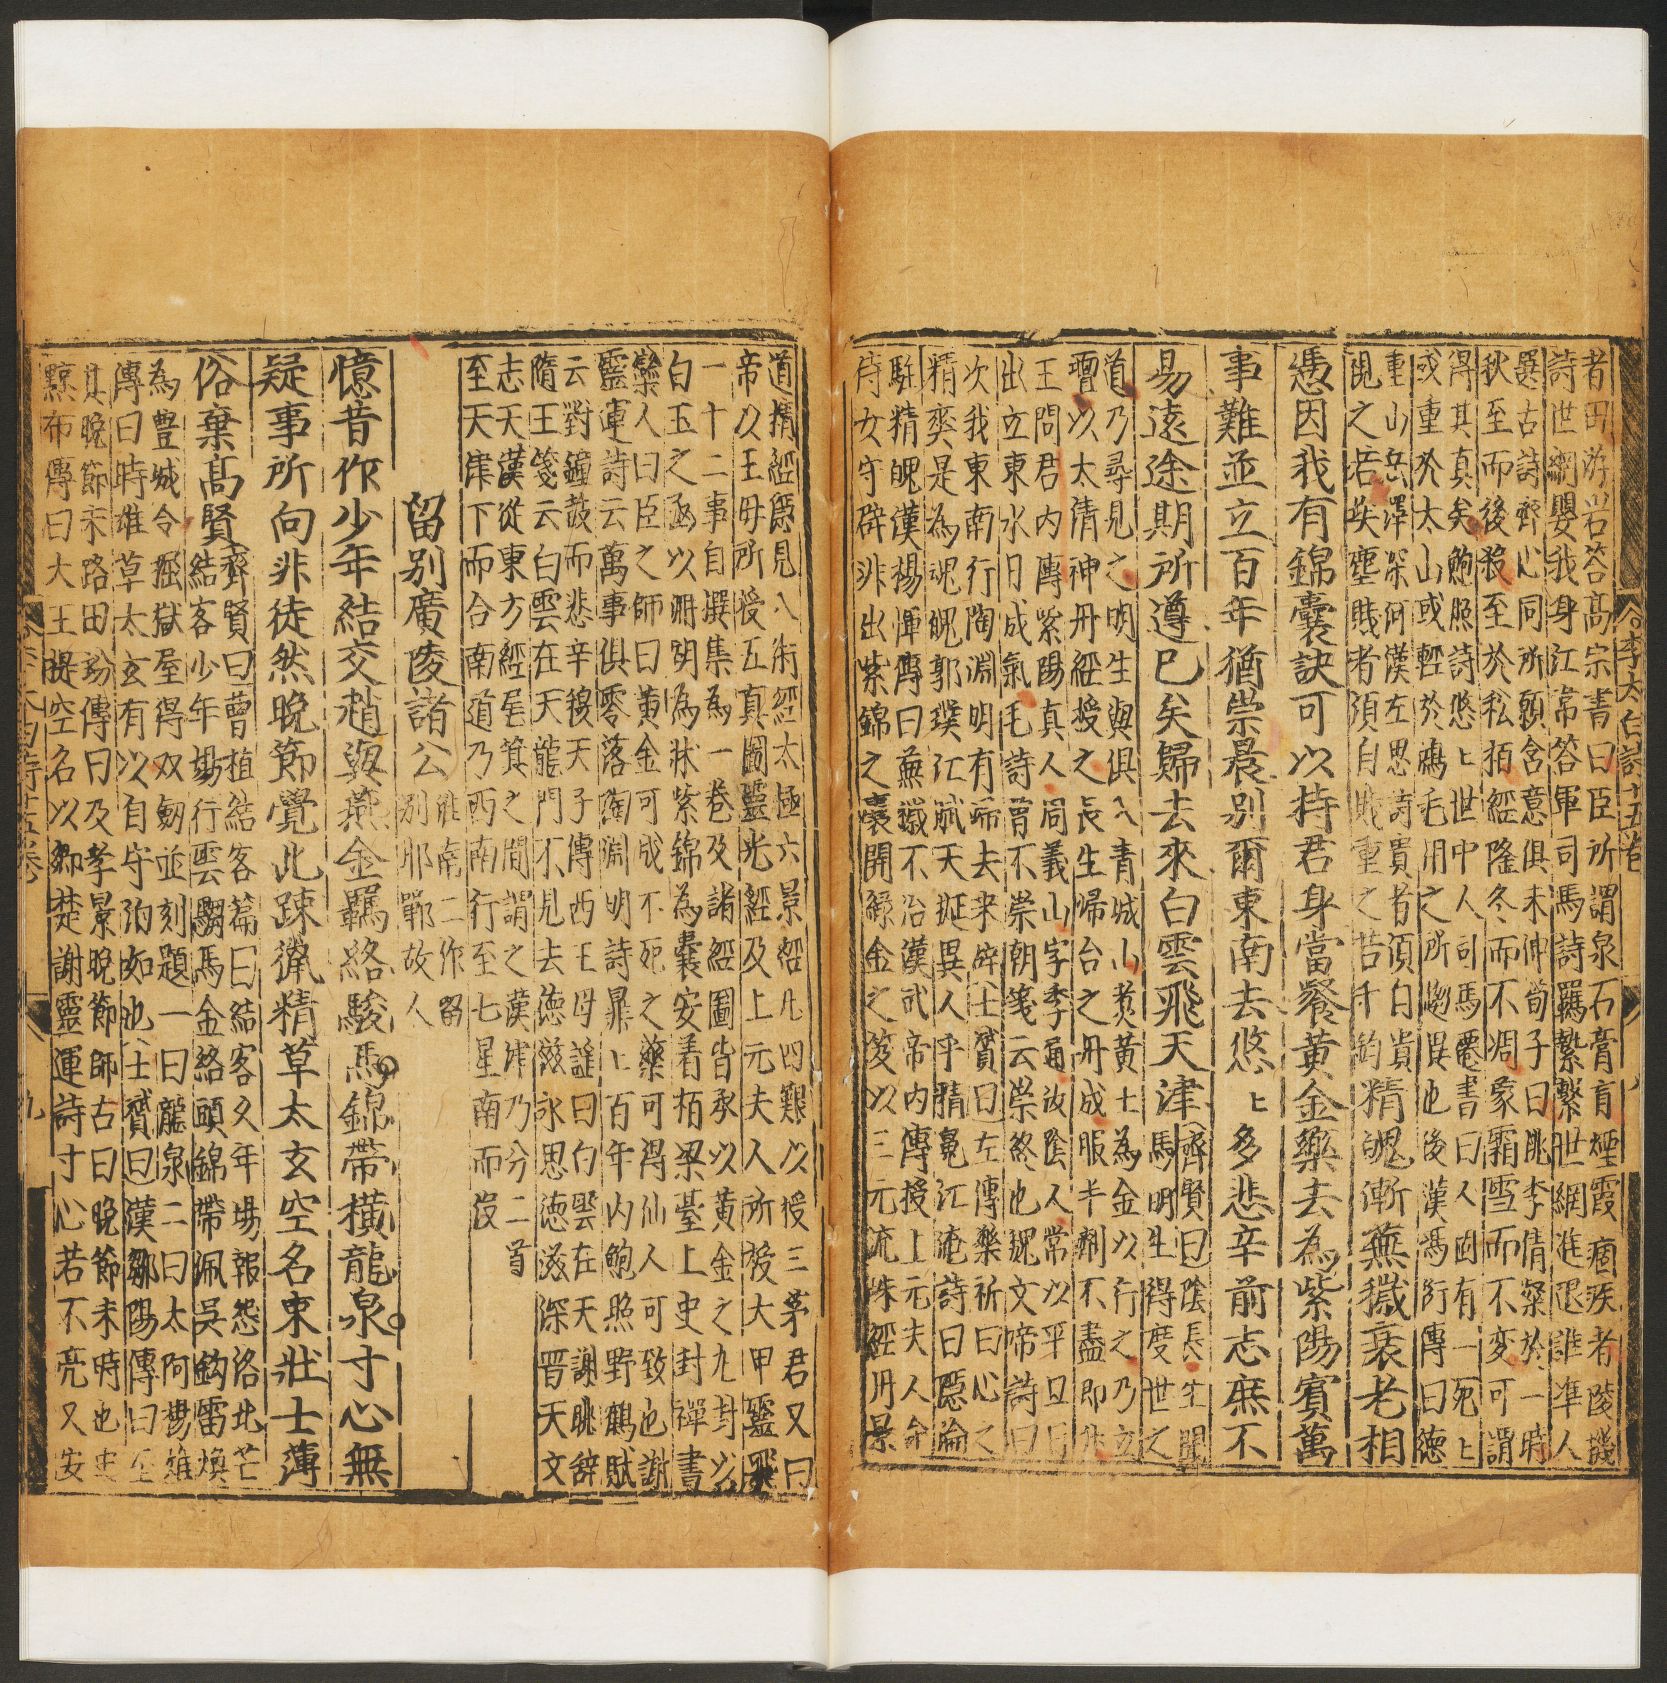 者田游岩答高宗書曰臣所謂泉石膏肓煙霞痼疾者陵機
詩世網嬰我身江常答軍司馬詩羈縶繫世網進退誰準人
選古詩齊心同所願含意俱未伸荀子曰桃李倩粲於一時
秋至而後殺至於松栢經隆冬而不凋蒙霜雪而不変可謂
得其真矣鮑照詩悠〻世中人司馬遷書曰人固有一死〻
或重於太山或輕於鴻毛用之所趨異也後漢馮衍傳曰德
重山岳澤深河漢左思詩貴者須自貴
視之若埃塵賤者須自賤重之若千鈞
精魄漸蕪穢衰老相
憑因我有錦囊訣可以持君身當餐黃金藥去為紫陽賓萬
事難並立百年猶崇晨別爾東南去悠〻多悲辛前志庶不
易遠途期所遵已矣歸去來白雲飛天津
齊賢曰陰長生聞
馬明生得度世之
道乃尋見之明生與俱入青城山煮黃土為金以行之乃立
壇以太清神丹經授之長生歸台之丹成服半劑不盡即升
王問君內傳紫陽真人周義山字季通汝陰人常以平旦日
出立東水日成氣毛詩曾不崇朝箋云崇終也魏文帝詩曰
次我東南行陶淵明有歸去来辞士贇曰左傳樂祈曰心之
精爽是為魂魄郭璞江賦天挻異人乎精鼂江淹詩曰隱淪
駐精魄漢楊惲傳曰蕪穢不治漢武帝內傳授上元夫人命
侍女守辟非出紫錦之囊開綠金之笈以三元流珠經丹景
道精經隱見八術經太極六景經凡四艱以授三茅君又曰
帝以王母所授五真圖靈光經及上元夫人所授大甲靈飛
一十二事自選集為一卷及諸經圖皆承以黃金之九封以
白玉之函以珊瑚為牀紫錦為囊安着栢梁臺上史封禪書
欒人曰臣之師曰黃金可成不死之藥可得仙人可致也謝
靈運詩云萬事俱零落陶淵明詩鼎〻百年內鮑照野鶴賦
云對鐘鼓而悲辛穆天子傳西王母謠曰白雲在天謝朓辞
隋王箋云白雲在天龍門不見去德滋永思德滋深晋天文
志天漢從東方經尾箕之間謂之漢津乃分二首
至天津下而合南道乃西南行至七星南而沒
留別廣陵諸公
淮南二作留
別邯鄲故人
憶昔作少年結交趙與燕金羈絡駿馬錦帶橫龍泉寸心無
疑事所向非徒然晚節覺此踈獵精草太玄空名束壯士薄
俗棄高賢
齊賢曰曹植結客篇曰結客少年場報怨洛北芒
結客少年場行雲驄馬金絡頭錦帶佩吳鈎雷煥
為豐城令掘獄屋得双劒並刻題一曰龍泉二曰太阿揚雄
傳曰時雄草太玄有以自守泊如也士贇曰漢鄒陽傳曰至
其晚節末路田蚡傳曰及孝景晚節師古曰晚節末時也史
黥布傳曰大王提空名以鄉楚謝靈運詩寸心若不亮又安